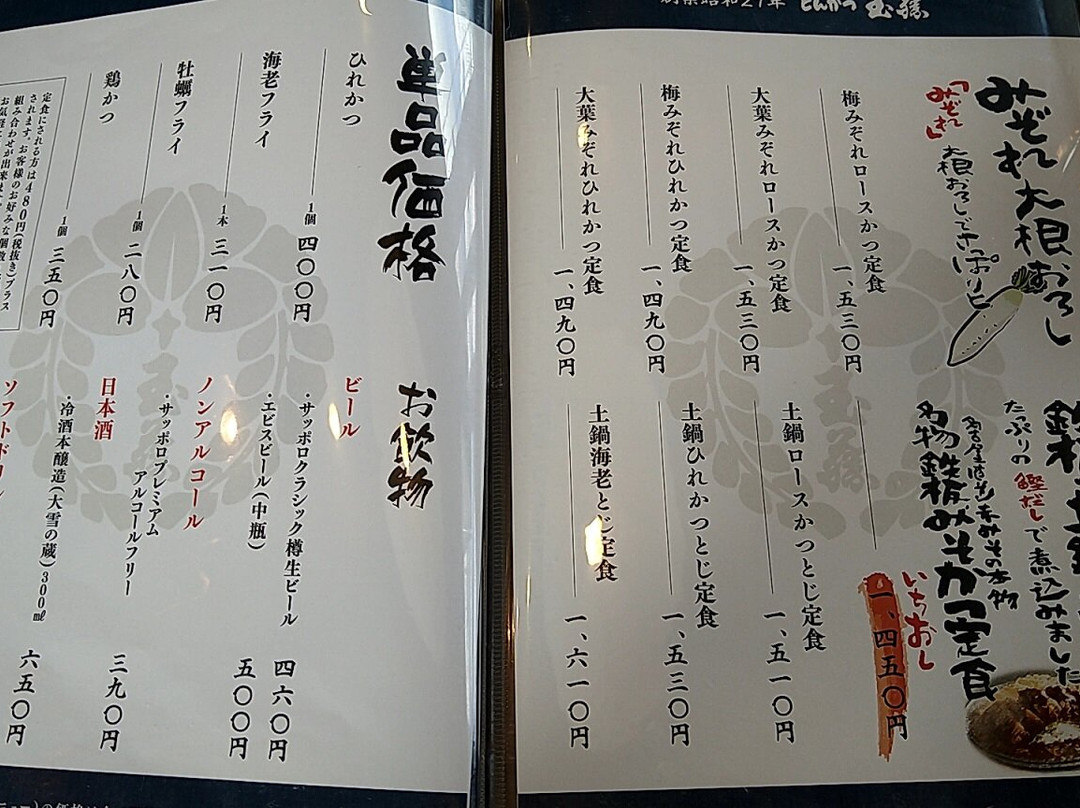 創業昭和27年 とんかつ 玉藤
みぞれ大根おろし
「みぞれ」大根おろしでさっぱりと
梅みぞれロースかつ定食 一、五三〇円
大葉みぞれロースかつ定食 一、五三〇円
梅みぞれひれかつ定食 一、四九〇円
大葉みぞれひれかつ定食 一、四九〇円
たっぷりの鰹だしで煮込みました
名物鉄板みそかつ定食
いちおし
一、四五〇円
土鍋ロースかつとじ定食 一、五一〇円
土鍋ひれかつとじ定食 一、五三〇円
土鍋海老とじ定食 一、六一〇円
単品価格
ひれかつ 1個 四〇〇円
海老フライ 1本 三一〇円
牡蠣フライ 1個 二八〇円
鶏かつ 1個 三五〇円
定食にされる方は480円(税抜き)プラス
されます。お客様のお好みな個数、
組み合わせが出来ま
お気軽に
お飲物
ビール
・サッポロクラシック樽生ビール 四六〇円
・エビスビール(中瓶) 五〇〇円
ノンアルコール
・サッポロプレミアム
アルコールフリー 三九〇円
日本酒
・冷酒本醸造(大雪の蔵)300㎖ 六五〇円
ソフトドリ